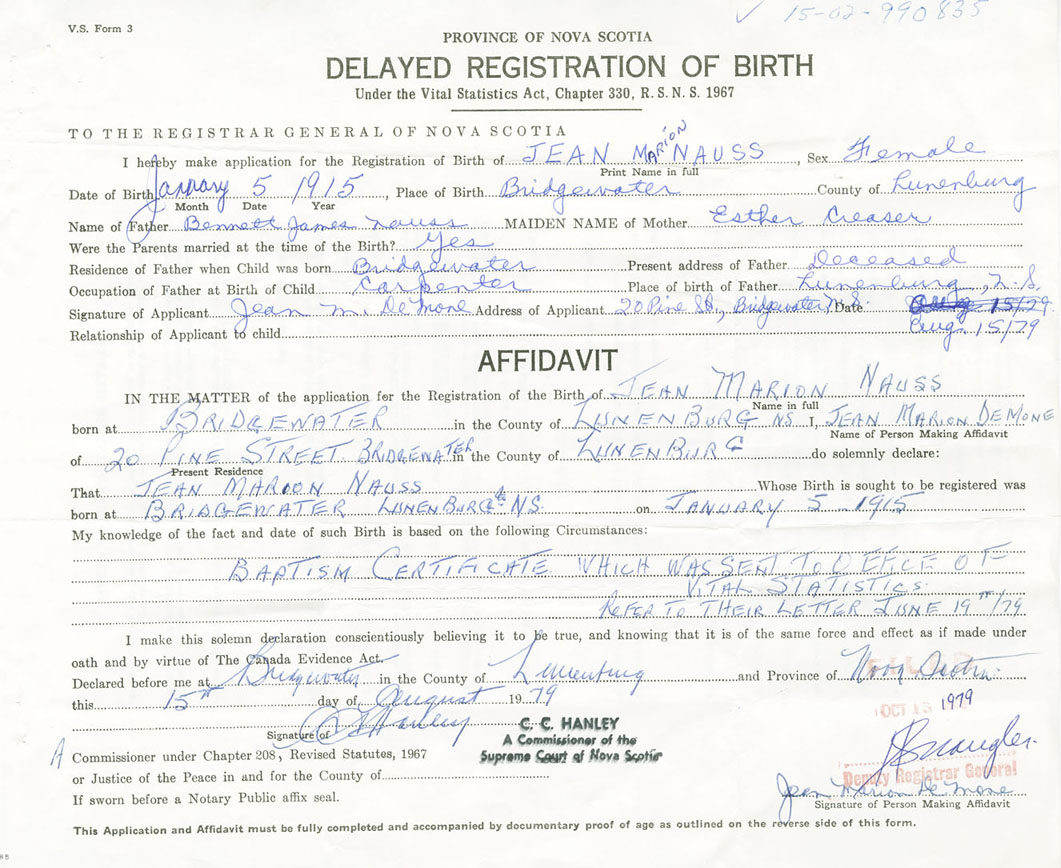 V.S. Form 3
✓ 15-02-990835
PROVINCE OF NOVA SCOTIA
DELAYED REGISTRATION OF BIRTH
Under the Vital Statistics Act, Chapter 330, R.S.N.S. 1967
TO THE REGISTRAR GENERAL OF NOVA SCOTIA
I hereby make application for the Registration of Birth of JEAN MARION NAUSS, Sex Female
Print Name in full
Date of Birth January 5 1915, Place of Birth Bridgewater County of Lunenburg
Month Date Year
Name of Father Bennett James Nauss MAIDEN NAME of Mother Esther Creaser
Were the Parents married at the time of the Birth? Yes
Residence of Father when Child was born Bridgewater Present address of Father Deceased
Occupation of Father at Birth of Child Carpenter Place of birth of Father Lunenburg, N.S.
Signature of Applicant Jean M. DeMone Address of Applicant 20 Pine St., Bridgewater, N.S. Date Aug 15/79
Relationship of Applicant to child Aug. 15/79
AFFIDAVIT
IN THE MATTER of the application for the Registration of the Birth of JEAN MARION NAUSS
Name in full
born at BRIDGEWATER in the County of LUNENBURG NS I, JEAN MARION DEMONE
Name of Person Making Affidavit
of 20 PINE STREET BRIDGEWATER in the County of LUNENBURG do solemnly declare:
Present Residence
That JEAN MARION NAUSS Whose Birth is sought to be registered was
born at BRIDGEWATER LUNENBURG NS. on JANUARY 5 1915
My knowledge of the fact and date of such Birth is based on the following Circumstances:
BAPTISM CERTIFICATE WHICH WAS SENT TO OFFICE OF
VITAL STATISTICS.
REFER TO THEIR LETTER JUNE 19TH/79
I make this solemn declaration conscientiously believing it to be true, and knowing that it is of the same force and effect as if made under
oath and by virtue of The Canada Evidence Act.
Declared before me at Bridgewater in the County of Lunenburg and Province of Nova Scotia.
FILED
this 15th day of August 1979
OCT 15 1979
Signature of C C Hanley
C. C. HANLEY
A Commissioner of the
Supreme Court of Nova Scotia
A Commissioner under Chapter 208, Revised Statutes, 1967
or Justice of the Peace in and for the County of
Deputy Registrar General
Jean Marion DeMone
Signature of Person Making Affidavit
If sworn before a Notary Public affix seal.
This Application and Affidavit must be fully completed and accompanied by documentary proof of age as outlined on the reverse side of this form.